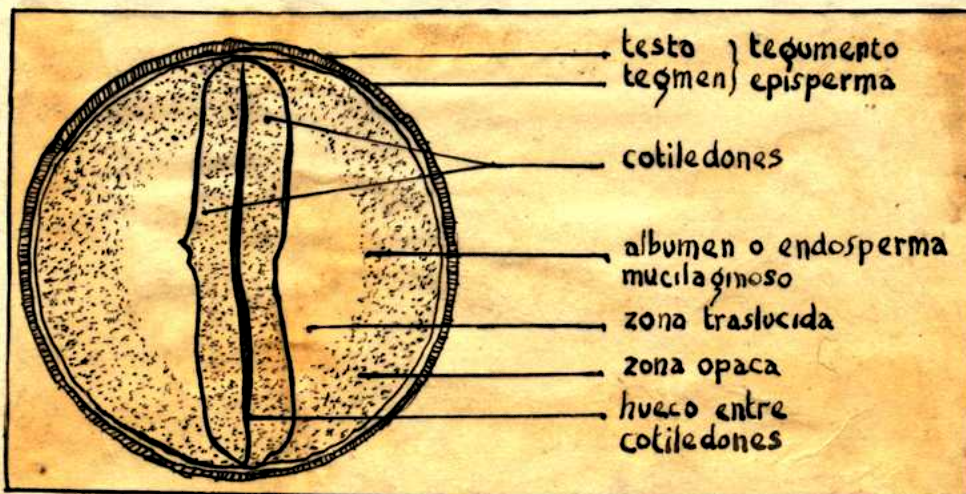 testa } tegumento
tegmen } episperma
cotiledones
albumen o endosperma
mucilaginoso
zona traslucida
zona opaca
hueco entre
cotiledones